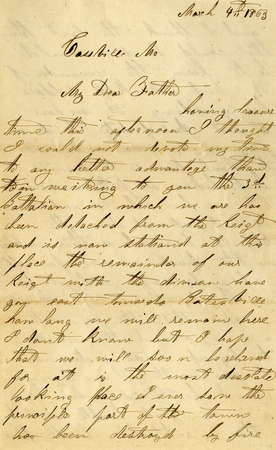 March 4th 1863
Cassville Mo
My Dear Father
having
time this afternoon I thought
I could not devote my time
to any better advantage than
in writing to you the 3rd
battalian in which we are has
been detached from the Reigt
and is now stationd at this
place the remainder of our
Reigt with the division have
gon east towards Batesville
how long we will remain here
I dont know but I hope
that we will soon be relieved
for it is the most desolate
looking place I ever saw the
principle part of the town
has been destroyd by fire